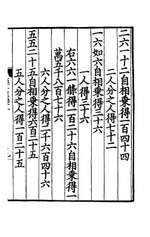 二六一十二自相乘得一百四十四
二人分之人得七十二
一六如六自相乘得三十六
一人得三十六
右六六一條得一百二十六自相乘得一
萬五千八百七十六
六人分之人得二千六百四十六
五五二十五自相乘得六百二十五
五人分之人得一百二十五